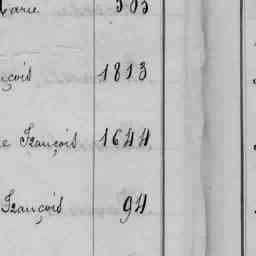 Marie 503
nçois 1813
e François 1644
François 94